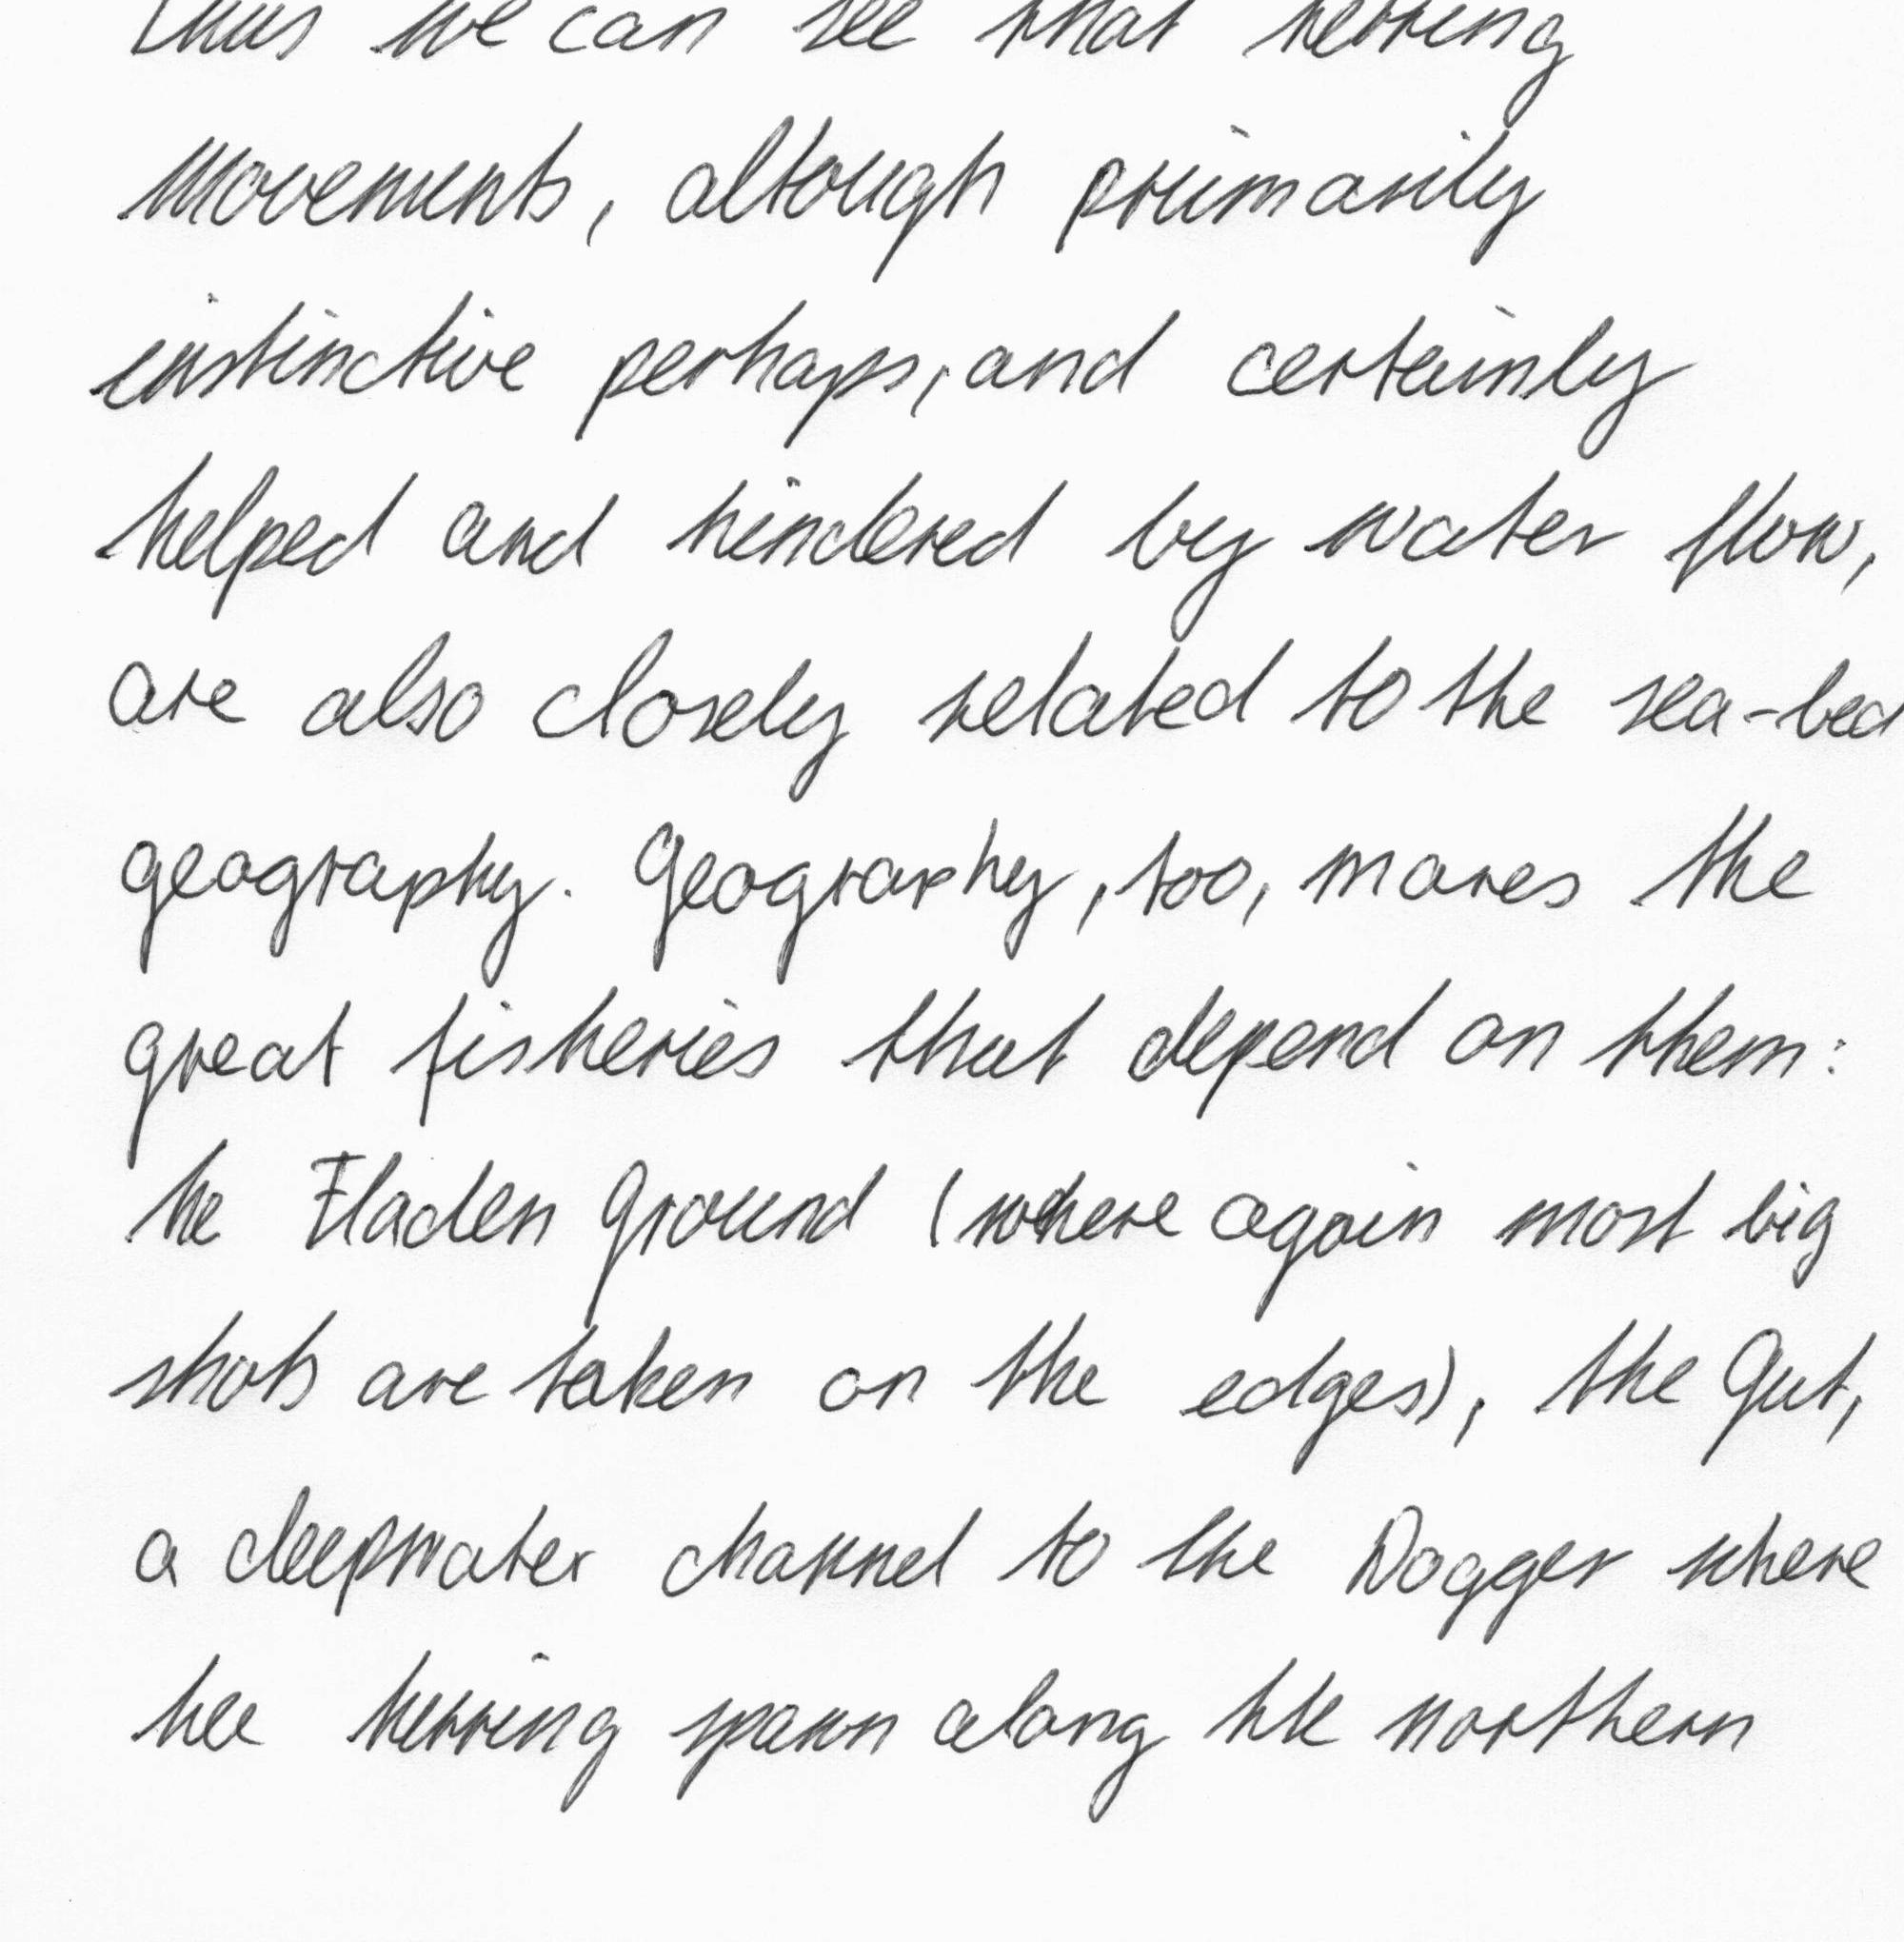 Thus we can see that herring
movements, altough primarily
instinctive perhaps, and certainly
helped and hindered by water flow,
are also closely related to the sea-bed
geography. Geography, too, makes the
great fisheries that depend on them:
he Fladen Ground (where again most big
shots are taken on the edges), the Gut,
a deepwater channel to the Dogger where
hee herring spawn along hte northern